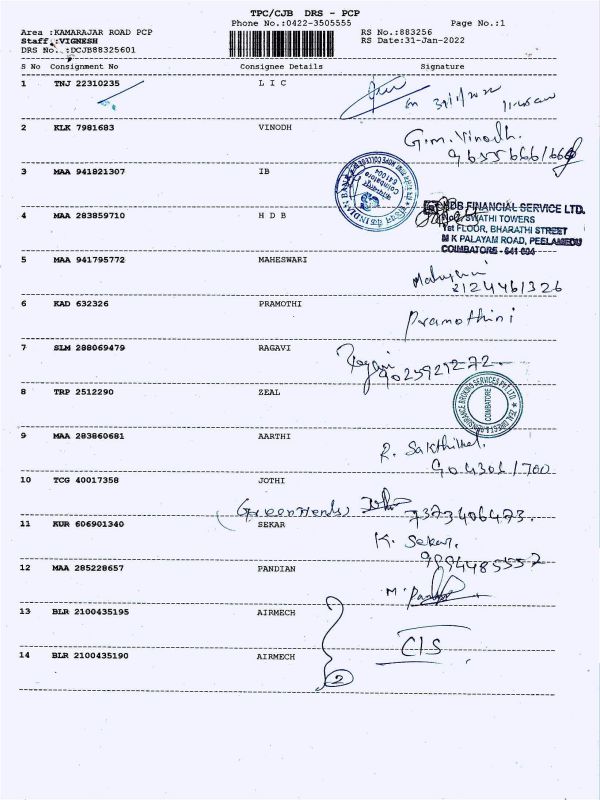 TPC/CJB DRS - PCP
Phone No.:0422-3505555 Page No.:1
Area :KAMARAJAR ROAD PCP RS No.:883256
Staff :VIGNESH RS Date:31-Jan-2022
DRS No.:DCJB88325601
S No Consignment No Consignee Details Signature
1 TNJ 22310235 L I C
2 KLK 7981683 VINODH
G.m. Vinodh.
3 MAA 941821307 IB
INDIAN BANK
Coimbatore
641004
4 MAA 283859710 H D B
HDB FINANCIAL SERVICE LTD.
SWATHI TOWERS
1st FLOOR, BHARATHI STREET
M K PALAYAM ROAD, PEELAMEDU
COIMBATORE - 641 004
5 MAA 941795772 MAHESWARI
8124461326
6 KAD 632326 PRAMOTHI
Pramothini
7 SLM 288069479 RAGAVI
9025929272
8 TRP 2512290 ZEAL
COIMBATORE
9 MAA 283860681 AARTHI
R. Sakthivel.
9043061700
10 TCG 40017358 JOTHI
7373406473.
11 KUR 606901340 SEKAR
K. Sekar.
9994485557
12 MAA 285228657 PANDIAN
13 BLR 2100435195 AIRMECH
CIS
14 BLR 2100435190 AIRMECH
2